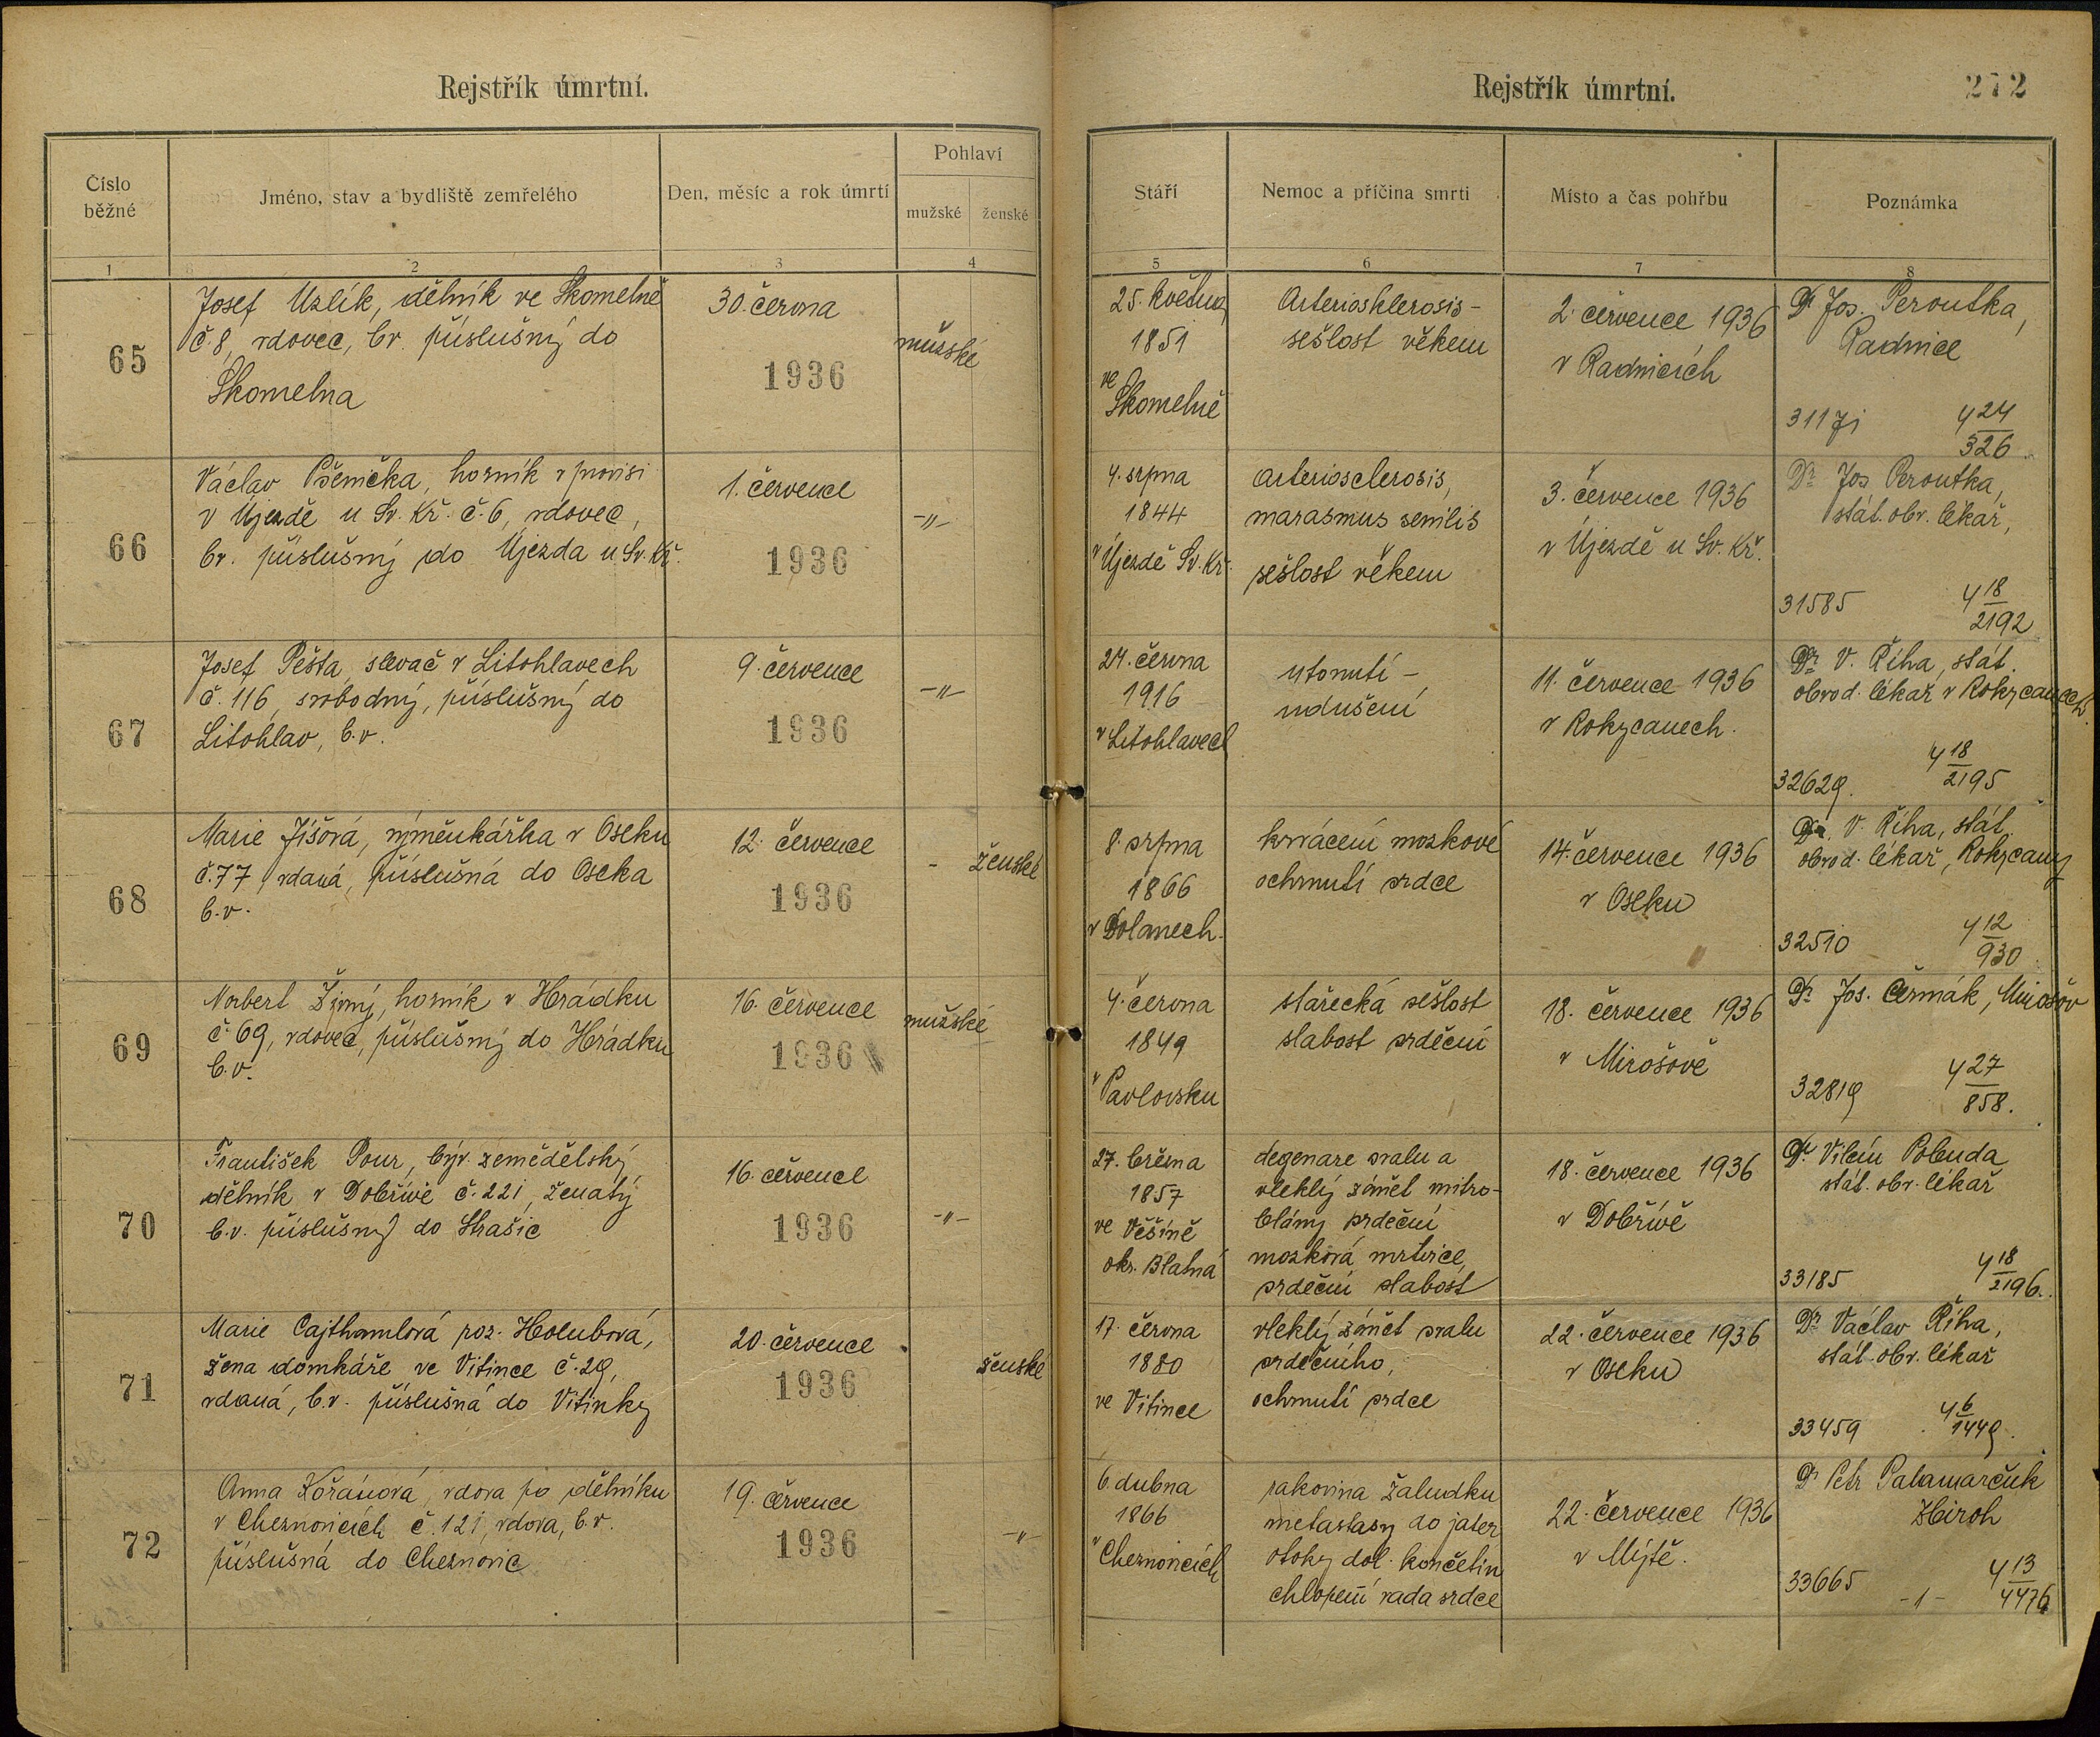 Rejstřík úmrtní.
Číslo běžné
Jméno, stav a bydliště zemřelého
Den, měsíc a rok úmrtí
Pohlaví
mužské
ženské
1
2
3
4
65
Josef Uzlík, dělník ve Skomelně
č. 8, vdovec, bv. příslušný do
Skomelna
30. června
1936
mužské
66
Václav Pšenička, horník v provisi
v Újezdě u Sv. Kř. č. 6, vdovec,
bv. příslušný do Újezda u Sv. Kř.
1. července
1936
-„-
67
Josef Pešta, slevač v Litohlavech
č. 116, svobodný, příslušný do
Litohlav, b.v.
9. července
1936
-„-
68
Marie Jíšová, výměnkářka v Oseku
č. 77, vdaná, příslušná do Oseka
b.v.
12. července
1936
-
ženské
69
Norbert Živný, horník v Hrádku
č. 69, vdovec, příslušný do Hrádku
b.v.
16. července
1936
mužské
70
František Pour, býv. zemědělský
dělník v Dobřívě č. 221, ženatý
b.v. příslušný do Strašic
16. července
1936
-„-
71
Marie Cajthamlová roz. Holubová,
žena domkáře ve Vitince č. 29,
vdaná, b.v. příslušná do Vitinky
20. července
1936
ženské
72
Anna Kořánová, vdova po dělníku
v Cheznovicích č. 121, vdova, b.v.
příslušná do Cheznovic
19. července
1936
-„-
Rejstřík úmrtní.
272
Stáří
Nemoc a příčina smrti
Místo a čas pohřbu
Poznámka
5
6
7
8
25. května
1851
ve
Skomelně
Arteriosklerosis -
sešlost věkem
2. července 1936
v Radnicích
Dr Jos. Peroutka,
Radnice
4 24
326
4. srpna
1844
v Újezdě Sv. Kř.
Arteriosclerosis,
marasmus senilis
sešlost věkem
3. července 1936
v Újezdě u Sv. Kř.
Dr Jos. Peroutka,
stát. obv. lékař,
31585
4 18
2192
24. června
1916
v Litohlavech
utonutí -
udušení
11. července 1936
v Rokycanech.
Dr V. Říha, stát.
obvod. lékař v Rokycanech.
32629.
4 18
2195
8. srpna
1866
v Dolanech.
krvácení mozkové
ochrnutí srdce
14. července 1936
v Oseku
Dr. V. Říha, stát.
obvod. lékař, Rokycany
32510
4 12
930
4. června
1849
v Pavlovsku
stařecká sešlost
slabost srdeční
18. července 1936
v Mirošově
Dr Jos. Čermák, Mirošov
32819
4 27
858.
27. března
1857
ve Věšíně
okr. Blatná
degenare svalu a
vleklý zánět nitro-
blány srdeční
mozková mrtvice,
srdeční slabost
18. července 1936
v Dobřívě
Dr Vilém Pobuda
stát. obv. lékař
33185
4 18
2196.
17. června
1880
ve Vitince
vleklý zánět svalu
srdečního,
ochrnutí srdce
22. července 1936
v Oseku
Dr Václav Říha,
stát. obv. lékař
33459
4 6
1449.
6. dubna
1866
v Cheznovicích
rakovina žaludku
metastasy do jater
otoky dol. končetin
chlopení vada srdce
22. července 1936
v Mýtě.
Dr Petr Palamarčuk
Zbiroh
33665
-1-
4 13
4476